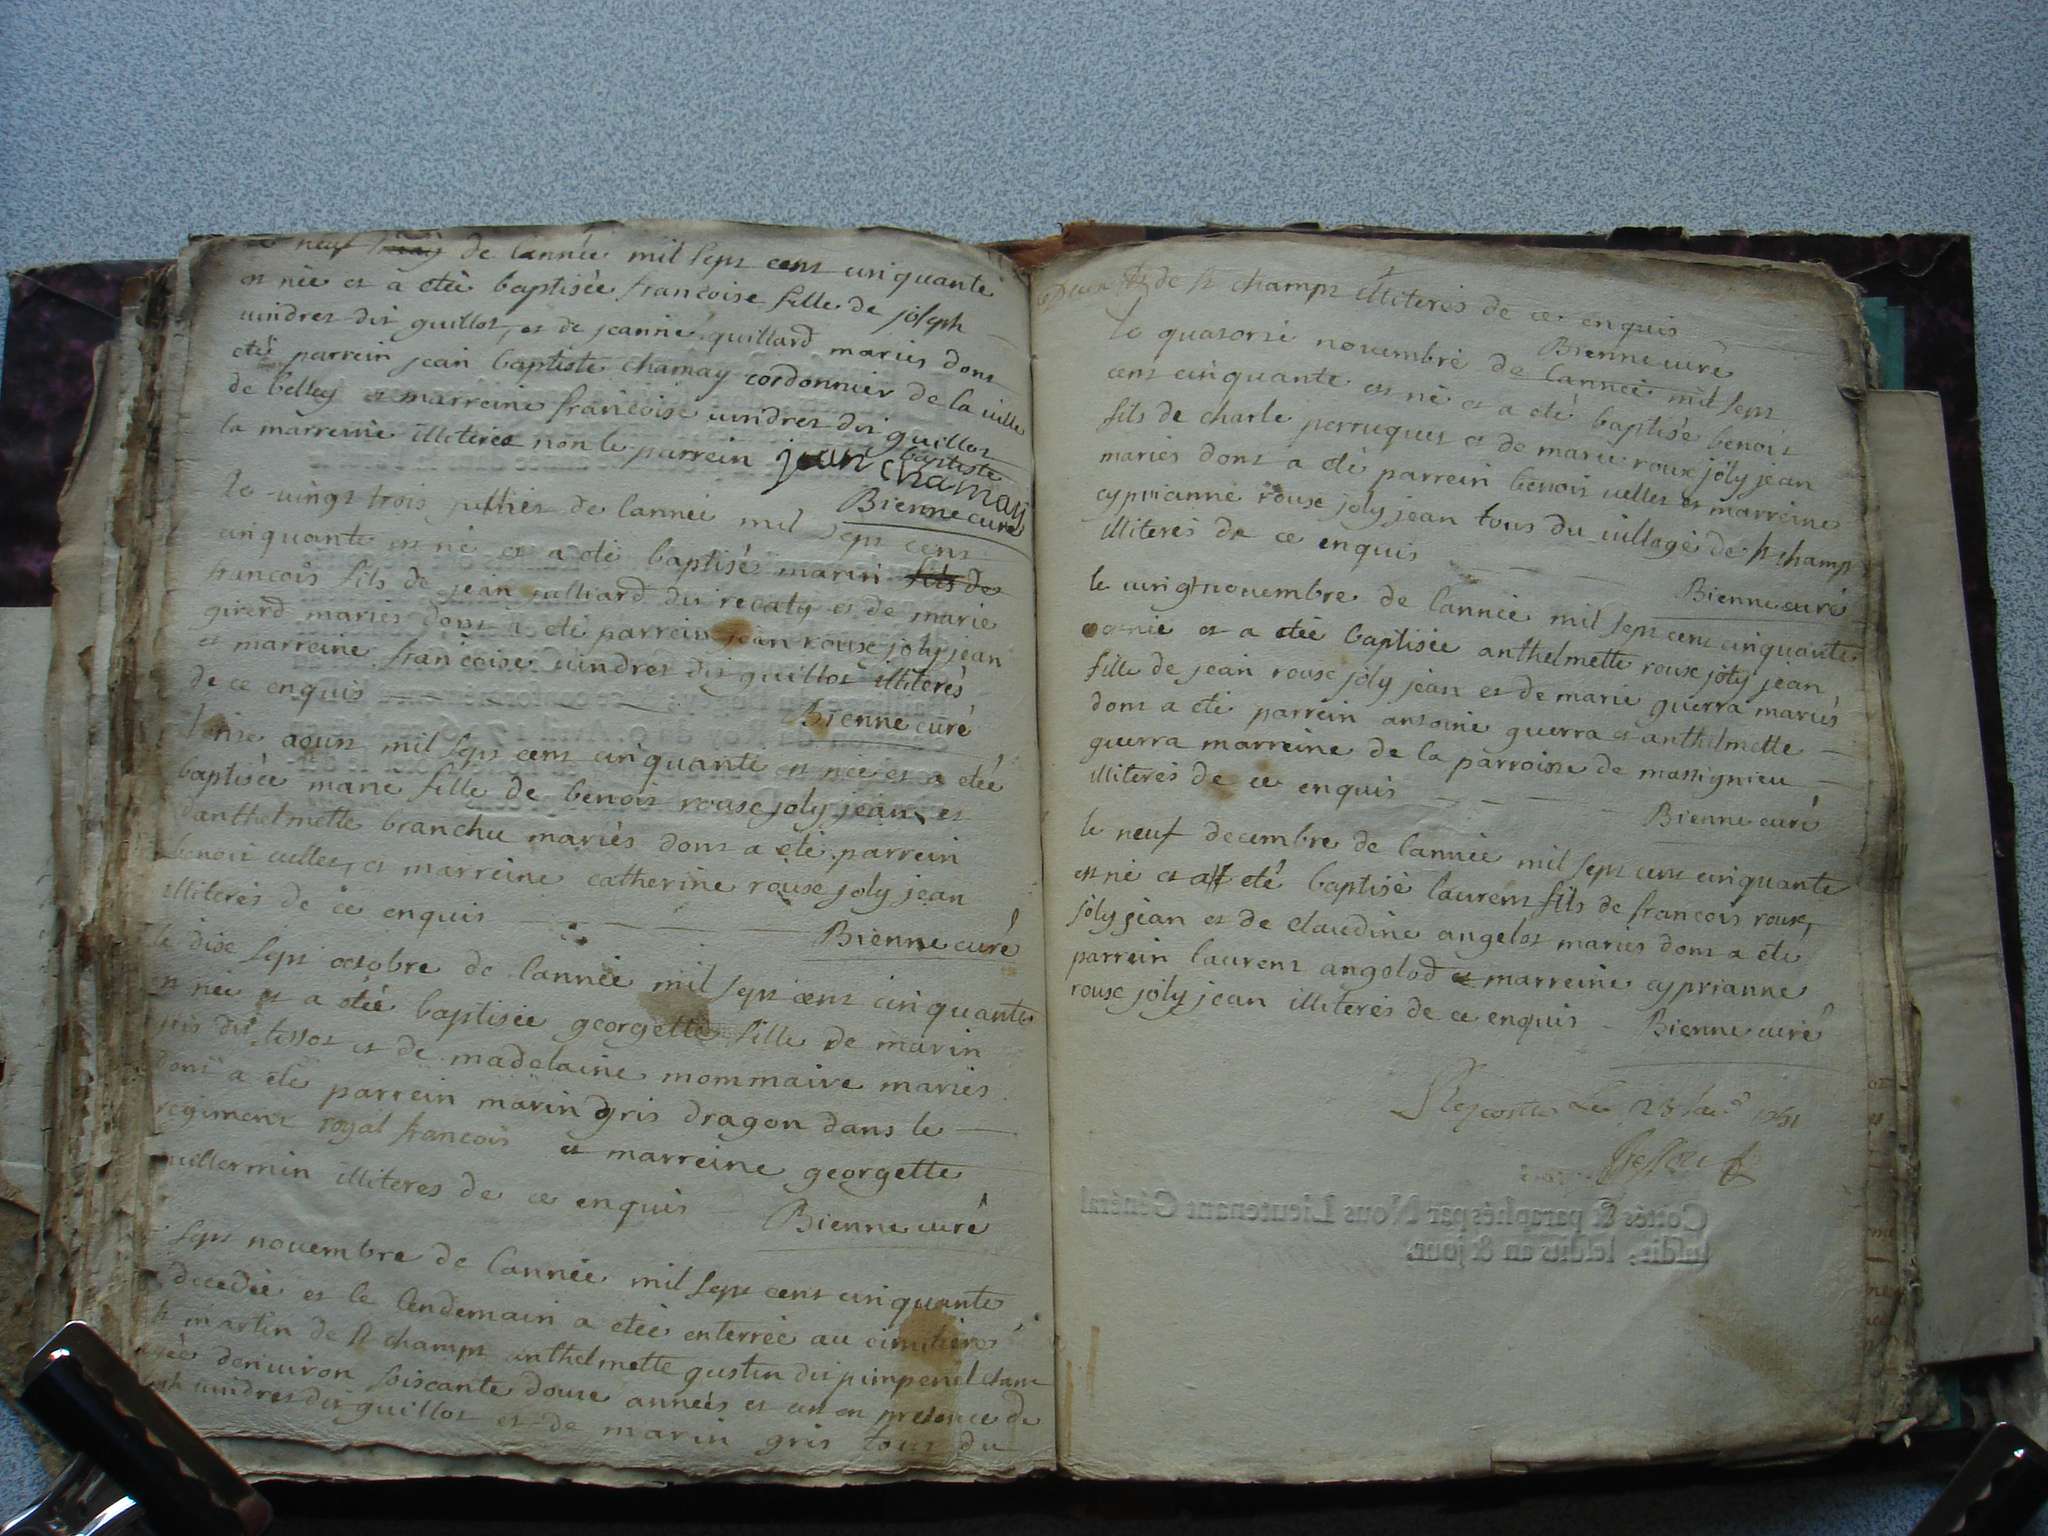 neuf de lannée mil sept cent cinquante
est née et a etée baptisée francoise fille de joseph
uindret dit guillot, et de jeanne guillard mariés dont
eté parrein jean baptiste chamay cordonnier de la uille
de belley et marreine francoise uindret dit guillot
la marreine illiteree non le parrein jean baptiste chamay
Bienne curé
le uingt trois juilliet de lannée mil sept cent
cinquante est né et a eté baptisés marin fils de
francois fils de jean juilliard dit recaty et de marie
girerd mariés dont a eté parrein jean rouxe joly jean
et marreine francoise uindret dit guillot illiterés
de ce enquis
Bienne curé
aoust mil sept cent cinquante est née et a etée
baptisée marie fille de benoit rouxe joly jean et
danthelmette branchu mariés dont a eté parrein
benoit uellet, et marreine catherine rouxe joly jean
illiterés de ce enquis
Bienne curé
le dixe sept octobre de lannée mil sept cent cinquante
est née et a etée baptisée georgette fille de marin
gris dit tissot et de madelaine mommaire mariés
dont a eté parrein marin gris dragon dans le
regiment royal francois et marreine georgette
uullermin illiteres de ce enquis
Bienne curé
sept nouembre de lannée mil sept cent cinquante
decedée et le lendemain a etée enterrée au cimitiere
st martin de st champt anthelmette gustin dit pimpenel
agée denuiron soixante douze années et cet en presence de
joseph uindret dit guillot et de marin gris tout du
de st champt illiterés de ce enquis
Bienne curé
le quatorze nouembre de lannée mil sept
cent cinquante est né et a eté baptisée benoit
fils de charle perruquet et de marie rouxe joly jean
mariés dont a eté parrein benoit uellet et marreine
cyprianne rouxe joly jean tous du uillage de st champ
illiterés de ce enquis
Bienne curé
le uingt nouembre de lannée mil sept cent cinquante
est née et a etée baptisée anthelmette rouxe joly jean
fille de jean rouxe joly jean et de marie guerra mariés
dont a eté parrein antoine guerra et anthelmette
guerra marreine de la parroisse de massignieu
illiterés de ce enquis
Bienne curé
le neuf decembre de lannée mil sept cent cinquante
est né et a eté baptisé laurent fils de francois rouxe
joly jean et de claudine angelot mariés dont a eté
parrein laurent angelod et marreine cyprianne
rouxe joly jean illiterés de ce enquis
Bienne curé
le 23
Cottés & paraphés par Nous Lieutenant Général
susdit, lesdits an & jour.